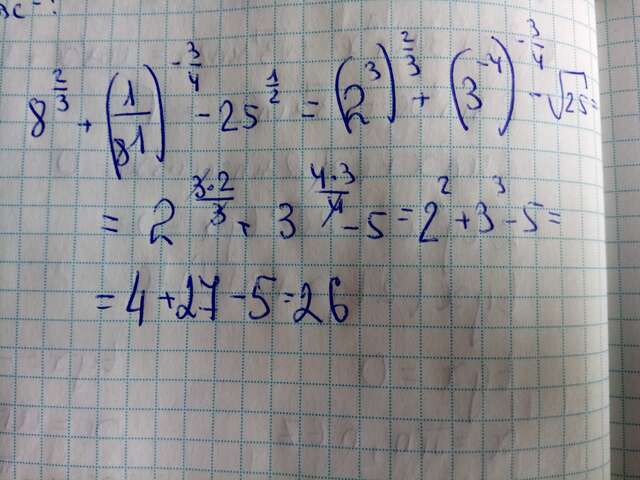 8^(2/3) + (1/81)^(-3/4) - 25^(1/2) = (2^3)^(2/3) + (3^(-4))^(-3/4) - √25 =
= 2^(3·2/3) + 3^(4·3/4) - 5 = 2^2 + 3^3 - 5 =
= 4 + 27 - 5 = 26